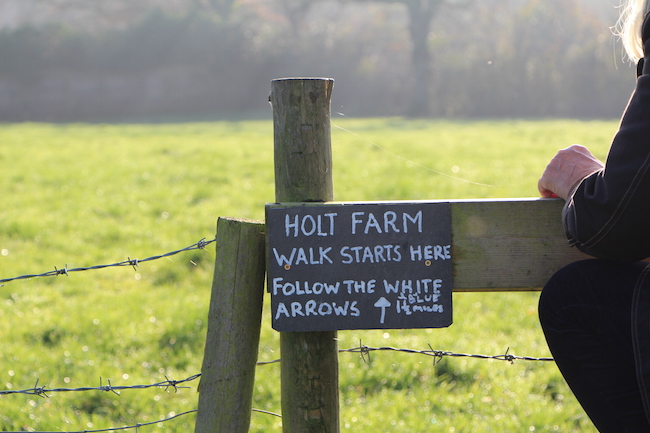 HOLT FARM
WALK STARTS HERE
FOLLOW THE WHITE
& BLUE
ARROWS ↑ 1½ MILES